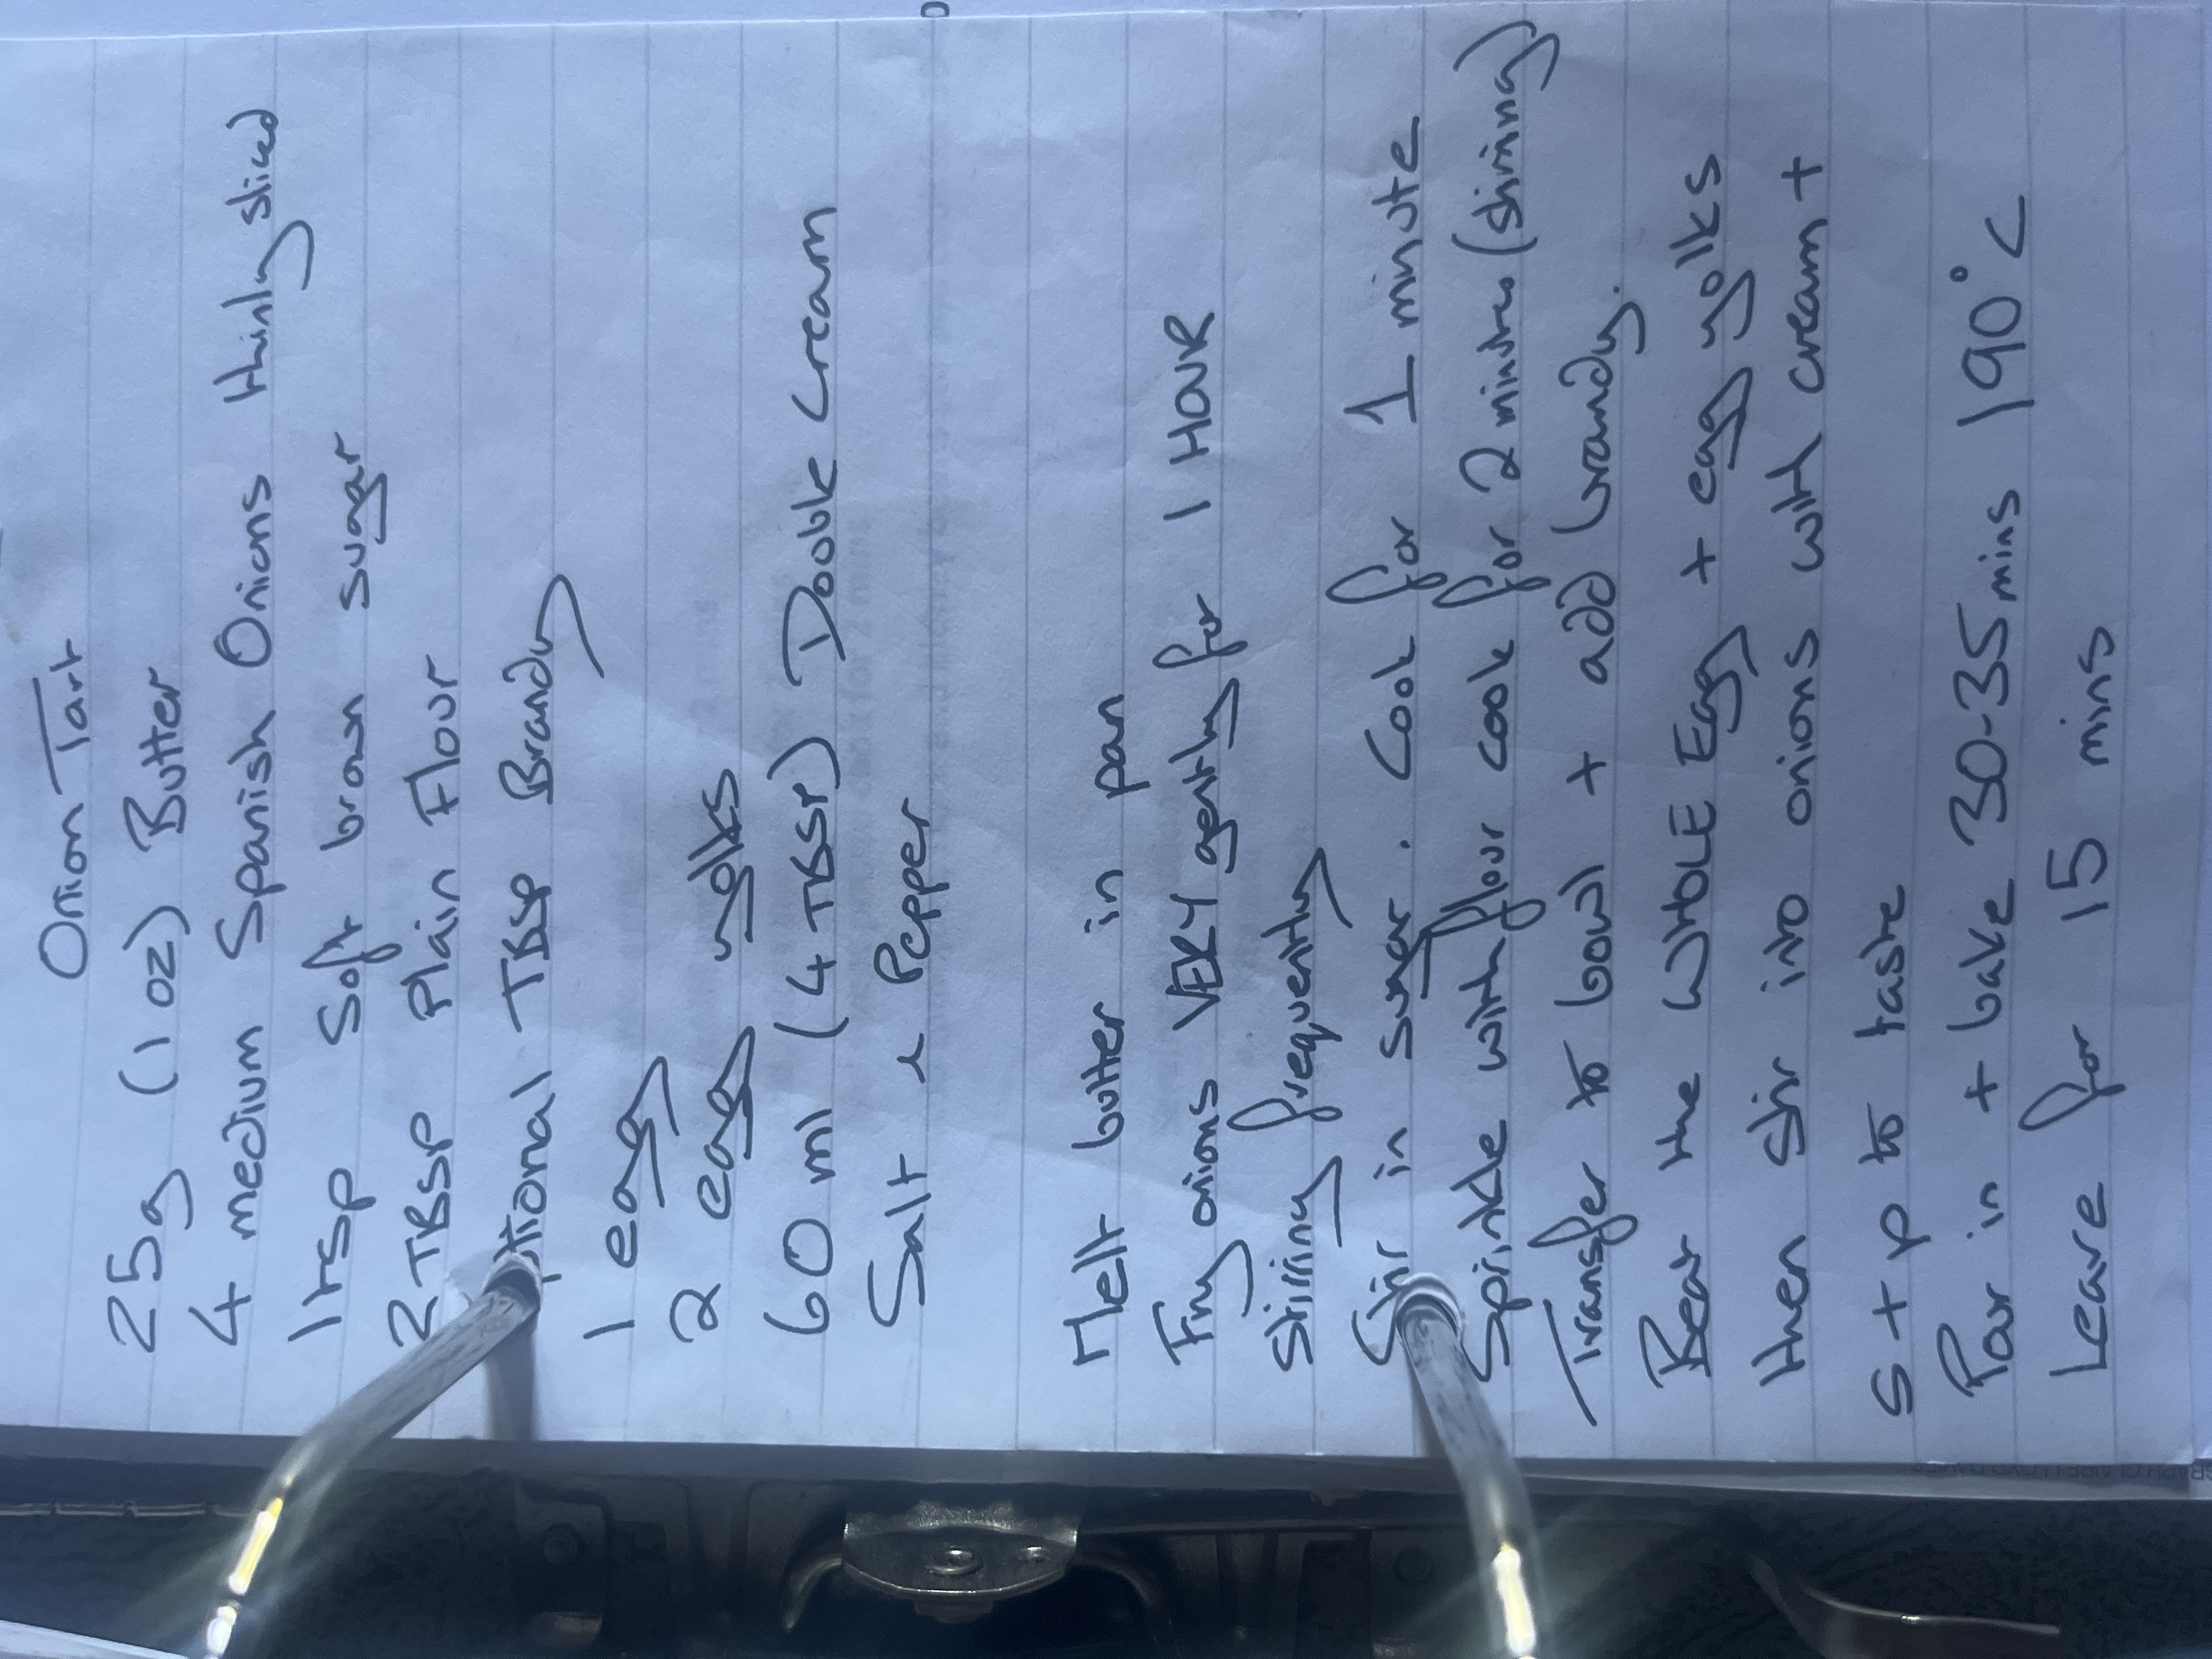 Onion Tart
25g (1oz) Butter
4 medium Spanish Onions thinly sliced
1 tsp Soft brown sugar
2 TBSP Plain Flour
tional TBSP Brandy
1 egg
2 egg yolks
60 ml (4 TBSP) Double Cream
Salt & Pepper
Melt butter in pan
Fry onions VERY gently for 1 HOUR
Stirring frequently
Stir in sugar. Cook for 1 minute
Sprinkle with flour cook for 2 minutes (stirring)
Transfer to bowl + add brandy.
Beat the WHOLE Egg + egg yolks
then stir into onions with cream +
S + P to taste
Pour in + bake 30-35mins 190°C
Leave for 15 mins